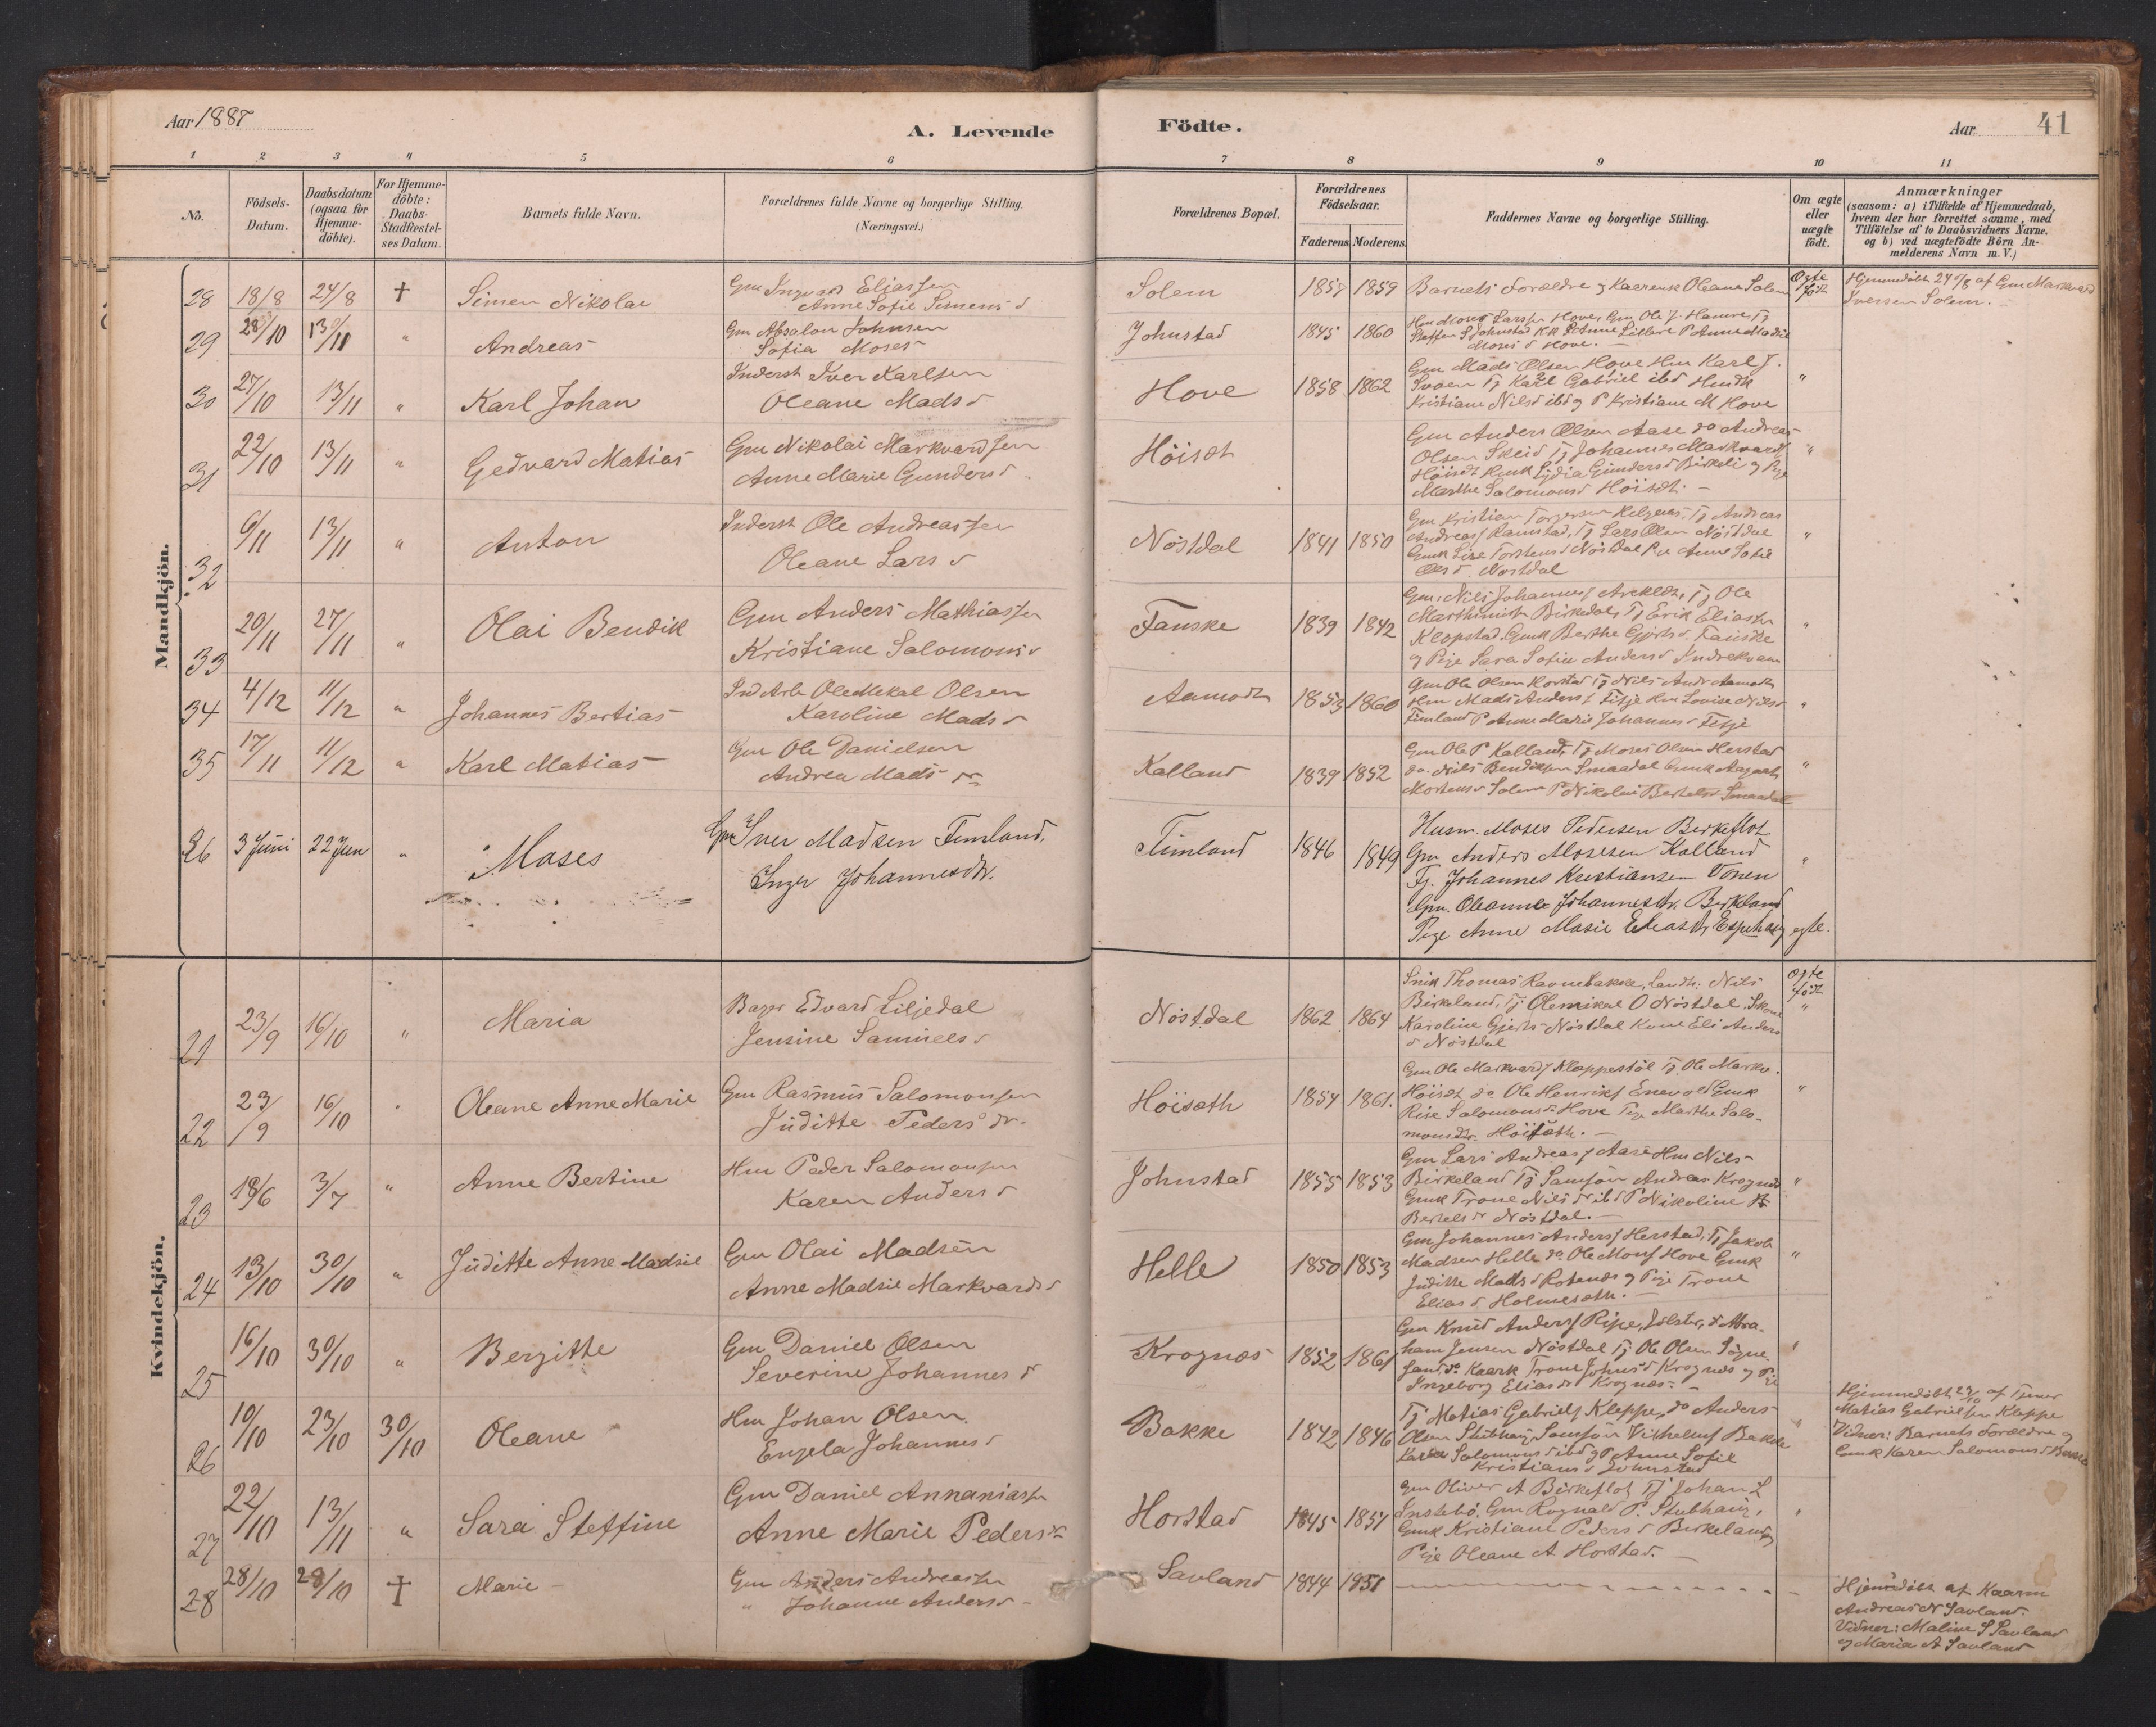 Aar 1887
A. Levende
Födte.
Aar
41
1 2 3 4 5 6
7 8 9 10 11
No.
Födsels-
Datum.
Daabsdatum
(ogsaa for
Hjemme-
döbte).
For Hjemme-
döbte:
Daabs-
Stadfestel-
ses Datum.
Barnets fulde Navn.
Forældrenes fulde Navne og borgerlige Stilling
(Næringsvei.)
Forældrenes Bopæl.
Forældrenes
Födselsaar.
Faderens. Moderens.
Faddernes Navne og borgerlige Stilling.
Om ægte
eller
uægte
födt.
Anmærkninger
(saasom: a) i Tilfælde af Hjemmedaab,
hvem der har forrettet samme, med
Tilföielse af to Daabsvidners Navne.
og b) ved uægtefödte Börn An-
melderens Navn m. V.)
Mandkjön.
28 18/8 24/8 † Simen Nikolai
Gm Eliassen
Anne Sofie Simensd
Solem 1857 1859
Barnets Forældre og Oleane Solem
Ægte
født
Hjemmedöbt 24/8 af Gm Markvard
Iversen Solem.
29 28/10 13/11 " Andreas
Gm Absalon Johnsen
Sofia Moses
Johnstad 1845 1860
Hm Moses Larssen Hove, Gm Ole J. Hamre, Tj
Steffen S Johnstad
Moses d Hove.
30 27/10 13/11 " Karl Johan
Inderst Iver Karlsen
Oleane Mads d
Hove 1858 1862 "
Gm Mads Olsen Hove Hm Karl J.
Svoen Tj Karl Gabriel ibd
Kristiane Nilsd ibd og P Kristiane M Hove
31 22/10 13/11 " Gedvard Matias
Gm Nikolai Markvardsen
Anne Marie Gunders d
Höiseth "
Gm Anders Olsen Aase do Andreas
Olsen Skeid Tj Johannes Markvards
Höiseth Lydia Gundersd Birkeli og Pige
Marthe Salomonsd Höiseth.
32 6/11 13/11 " Anton
Inderst Ole Andreassen
Oleane Lars d
Nöstdal 1841 1850 "
Gm Kristian Torgersen Helgaas, Tj Andreas
Andreas Ramstad, Tj Lars Olsen Nöstdal
Gmk Lise Torstens d Nöstdal Pige Anne Sofie
Ols d. Nöstdal
33 20/11 27/11 " Olai Bendik
Gm Anders Mathiassen
Kristiane Salomonsd
Fauske 1839 1842 "
Gm Nils Johannes, Tj Ole
Birkedal, Tj Erik Eliassen
Klopstad. Gmk Berthe Gjertsd. Fauske
og Pige Sara Sofie Anders d Indrekvam
34 4/12 11/12 " Johannes Bertias
Ind Arb Ole Mekal Olsen
Karoline Mads d
Aamodt 1853 1860 "
Gm Ole Olsen Horstad Tj Nils Andr Aamodt
Hm Mads Anders Fitje Lovise Nilsd
Timland P Anne Madie Johannes d Fitje
35 17/11 11/12 " Karl Matias
Gm Ole Danielsen
Andrea Mads dr
Kalland 1839 1852 "
Gm Ole P Kalland, Tj Moses Olsen Herstad
do. Nils Bendiksen Smaadal Gmk
Mortens d Solem P Nikolai Bertelsd Smaadal
36 3 Juni 22 Jun " Moses
Gm Iver Madsen Timland.
Inger Johannesdtr.
Timland 1846 1849 "
Husm. Moses Pedersen Berkeflot
Gm Anders Mosesen Kalland
Tj. Johannes Kristiansen Vonen
Gm. Oleanne Johannesdtr. Berkland
Pige Anne Masie Eliasdtr Espehaug egte.
Kvindekjön.
21 23/9 16/10 " Maria
Bager Edvard Liljedal
Jensine Samuels d
Nöstdal 1862 1864
Snik Thomas Ravnebakke, Landh: Nils
Birkeland, Tj: Olemikal O Nöstdal
Karoline Gjerts Nöstdal Kone Eli Anders
d Nöstdal
Ægte
født
"
22 23/9 16/10 " Oleane Anne Marie
Gm Rasmus Salomonsen
Juditte Peders dr.
Höiseth 1854 1861. "
Gm Ole Markvards Kloppestöl Tj Ole Markv.
Höiseth do Ole Henriks Enevold Gmk
Rise Salomonsd Hove Pige Marthe Salo-
monsdtr. Höiseth.
23 18/6 3/7 " Anne Bertine
Hm Peder Salomonsen
Karen Anders d
Johnstad 1855 1853 "
Gm Lars Andreas Aase Hm Nils
Birkeland Tj Samson Andreas Krognæs
Gmk Trone Nils dr ibd P Nikoline
Bertels dr Nöstdal.
24 13/10 30/10 " Juditte Anne Madsie
Gm Olai Madsen
Anne Madsie Markvards d
Helle 1850 1853 "
Gm Johannes Anders Herstad, Tj Jakob
Madsen Helle do Ole Mons Hove Gmk
Juditte Mads d og Pige Trone
Elias d Holmeseth.
25 16/10 30/10 " Bergitte
Gm Daniel Olsen
Severine Johannes d
Krognæs 1852 1861 "
Gm Knud Anders Ripe, Jölster, do Abra-
ham Jensen Nöstdal Tj Ole Olsen
Trone Johnsd Krognæs og Pige
Ingeborg Elias dr Krognæs.
26 10/10 23/10 30/10 Oleane
Hm Johan Olsen
Engela Johannes d
Bakke 1842 1846 "
Tj Matias Gabriels Kleppe, do Anders
Olsen Stubhaug Samson Vilhelms Bakke
Karen Salomonsd ibd og P Anne Sofie
Kristians d Johnstad
Hjemmedöbt 23/10 af Tjener
Matias Gabrielsen Kleppe
Vidner: Barnets Forældre og
Gmk Karen Salomonsd Bakke
27 22/10 13/11 " Sara Steffine
Gm Daniel Annaniassen
Anne Marie Peders dr
Horstad 1845 1851 "
Gm Oliver A Birkeflot Tj Johan L
Instebö, Gm Rognald P. Stubhaug,
Gmk Kristiane Peders d Birkeland og
Pige Oleane A Horstad.
28 28/10 28/10 † Marie
Gm Anders Andreassen
" Johanne Anders d
Savland 1844 1851
Hjemmedöbt af Kaarm
Andreas N Savland.
Vidner: Maline S Savland
og Maria A Savland